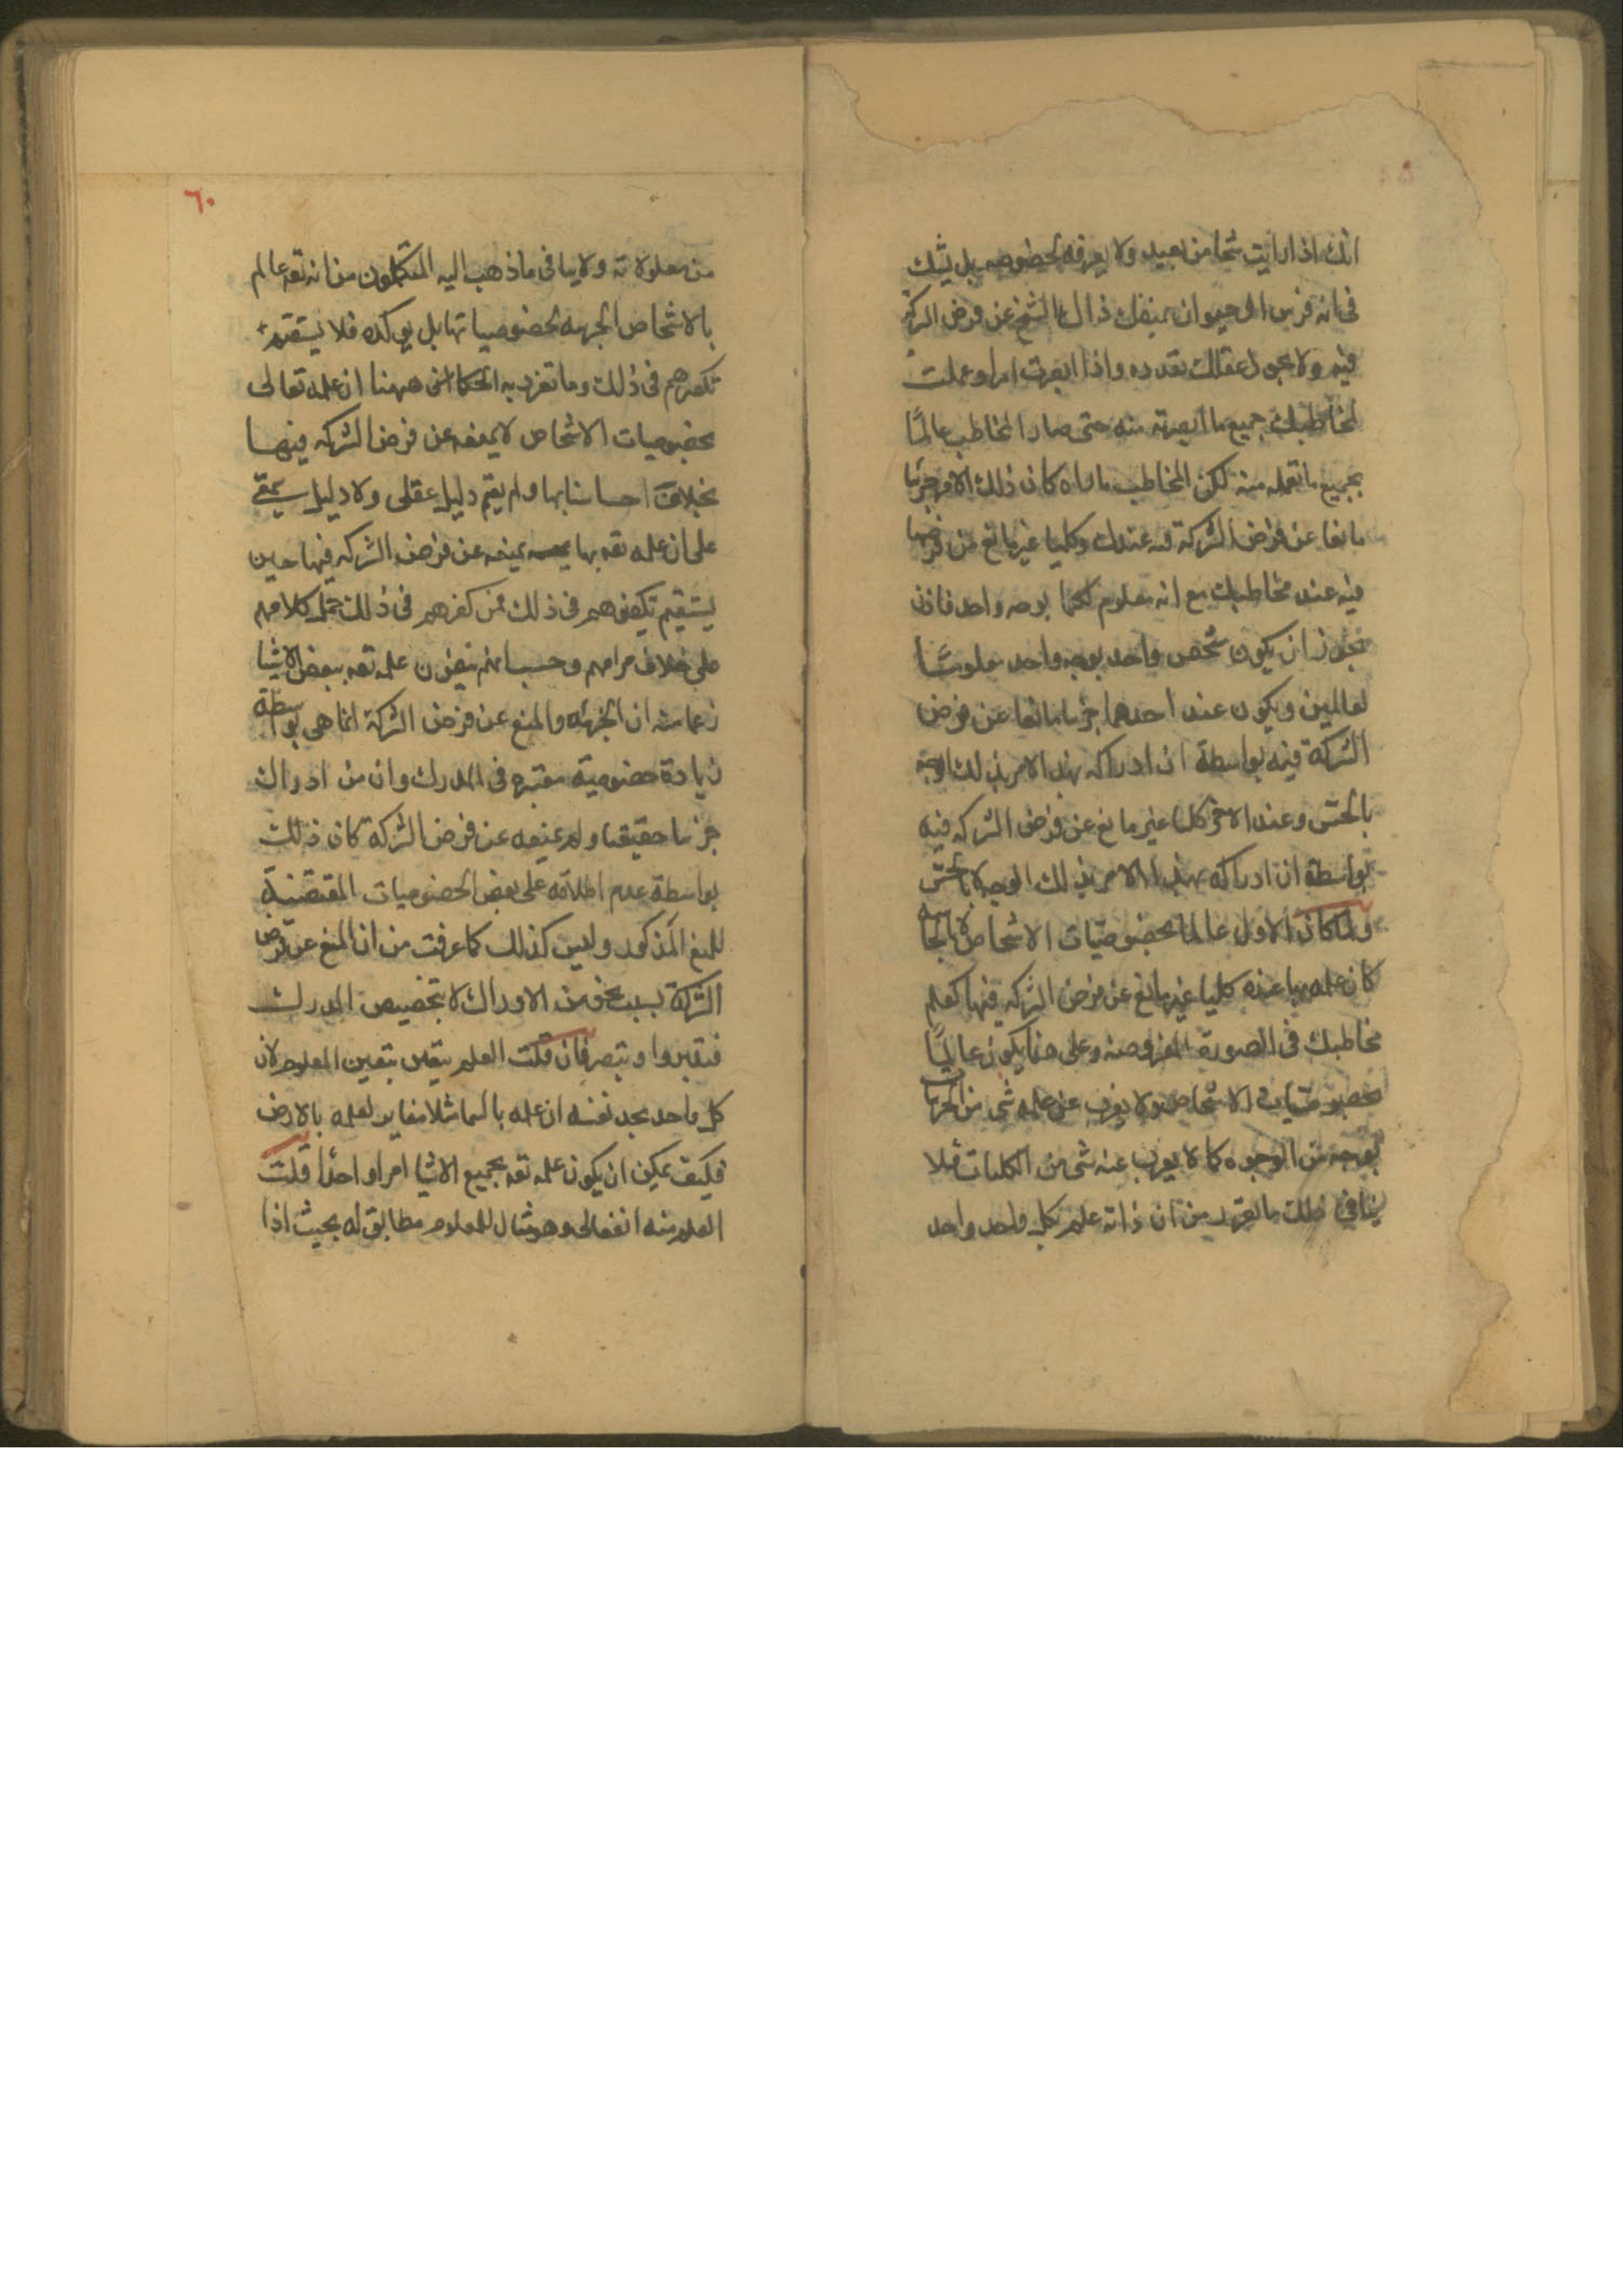 انك اذا رايت شبحا من بعيد ولا يعرفه بخصوصه بل يشك
فى انه فرس او حيوان يمنعك ذالك الشبح عن فرض الشركة
فيه ولا يجوز عقلك تعدده واذا ابصرت امرا وعملت
لمخاطبك جميع ما ابصرته منه حتى صار المخاطب عالمًا
بجميع ما تعمله منه لكن المخاطب ما راه كان ذلك الامر جزئيا
مانعا عن فرض الشركة فيه عندك وكليا غير مانع من فرضها
فيه عند مخاطبك مع انه معلوم لكما بوجه واحد فاذن
يجوز ان يكون شخص واحد بوجه واحد معلومًا
لعالمين ويكون عند احدهما جزئيا مانعا عن فرض
الشركة فيه بواسطة ان ادراكه بهذا الامر بذلك الوجه
بالحس وعند الاخر كليا غير مانع عن فرض الشركة فيه
بواسطة ان ادراكه بهذا الامر بذلك الوجه لا بالحس
ولما كان الاول عالما بخصوصيات الاشخاص لا
كان علمه بها عنده كليا غير مانع عن فرض الشركة فيها كعلم
مخاطبك فى الصورة المفروضه وعلى هذا يكون عالمًا
بخصوصيات الاشخاص ولا يعزب عن علمه شى من الجزئيات
بوجه من الوجوه كما لا يعزب عنه شى من الكليات فلا
ينافى ذلك ما تقرر من ان ذاته علم بكل واحد واحد
٦٠
من معلولاته ولا ينافى ما ذهب اليه المتكلمون من انه تعه عالم
بالاشخاص الجزئيه بخصوصياتها بل يوكده فلا يستقيم
تكفيرهم فى ذلك وما تفرد به الحكما فى ههنا ان علمه تعالى
بخصوصيات الاشخاص لا يمنعه عن فرض الشركه فيها
بخلاف احساسنا بها ولم يقم دليل عقلى ولا دليل سمعى
على ان علمه تعه بها يمنعه عن فرض الشركه فيها حين
يستقيم تكفيرهم فى ذلك فمن كفرهم فى ذلك حمل كلامهم
على خلاف مرامهم وحسب انهم ينفون علمه تعه ببعض الاشيا
زعما منه ان الجزئيه والمنع عن فرض الشركة انما هى بواسطة
زيادة خصوصية معتبره فى المدرك وان من ادرك
جزئيا حقيقيا ولم يمنعه عن فرض الشركة كان ذلك
بواسطة عدم اطلاعه على بعض الخصوصيات المقتضية
للمنع المذكور وليس كذلك كما عرفت من ان المنع عن فرض
الشركة بسبب نحو من الادراك لا بتخصيص المدرك
فتدبروا وتبصر فان قلت العلم يتعين بتعين المعلوم لان
كل واحد يجد نفسه ان علمه بالسما مثلا مغاير لعلمه بالارض
فكيف يمكن ان يكون علمه تعه بجميع الاشيا امرا واحدًا قلت
العلم منه انفعالى وهو مثال للمعلوم مطابق له بحيث اذا